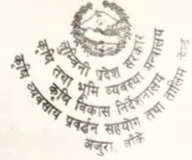 लुम्बिनी प्रदेश सरकार
कृषि तथा भूमि व्यवस्था मन्त्रालय
कृषि विकास निर्देशनालय
कृषि व्यवसाय प्रवर्द्धन सहयोग तथा तालिम केन्द्र
अजुरा, बाँके